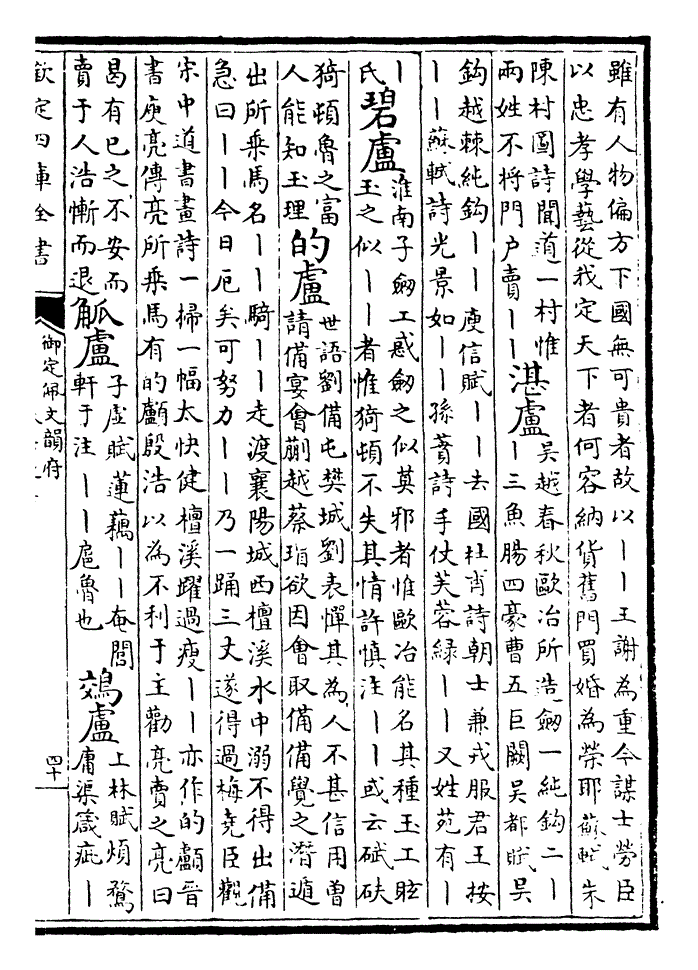 雖有人物偏方下國無可貴者故以丨丨王謝為重今謀士勞臣
以忠孝學藝從我定天下者何容納貨舊門買婚為榮耶蘇軾朱
陳村圖詩聞道一村惟
兩姓不将門户賣丨丨
湛盧
吳越春秋歐冶所造劒一純鈎二丨
丨三魚腸四豪曹五巨闕吳都賦吳
鈎越棘純鈎丨丨庾信賦丨丨去國杜甫詩朝士兼戎服君王按
丨丨蘇軾詩光景如丨丨孫蕡詩手仗芙蓉綠丨丨又姓苑有丨
丨
氏
碧盧
淮南子劒工惑劒之似莫邪者惟歐冶能名其種玉工眩
玉之似丨丨者惟猗頓不失其情許慎注丨丨或云碔砆
猗頓魯之富
人能知玉理
的盧
世語劉備屯樊城劉表憚其為人不甚信用曽
請備宴會蒯越蔡瑁欲因會取備備覺之潛遁
出所乗馬名丨丨騎丨丨走渡襄陽城西檀溪水中溺不得出備
急曰丨丨今日厄矣可努力丨丨乃一踊三丈遂得過梅堯臣觀
宋中道書畫詩一掃一幅太快健檀溪躍過瘦丨丨亦作的顱晉
書庾亮傳亮所乗馬有的顱殷浩以為不利于主勸亮賣之亮曰
曷有已之不安而
賣于人浩慚而退
觚盧
子虛賦蓮藕丨丨奄閭
軒于注丨丨扈魯也
鵁盧
上林賦煩鶩
庸渠箴疵丨
欽定四庫全書
御定佩文韻府
四十